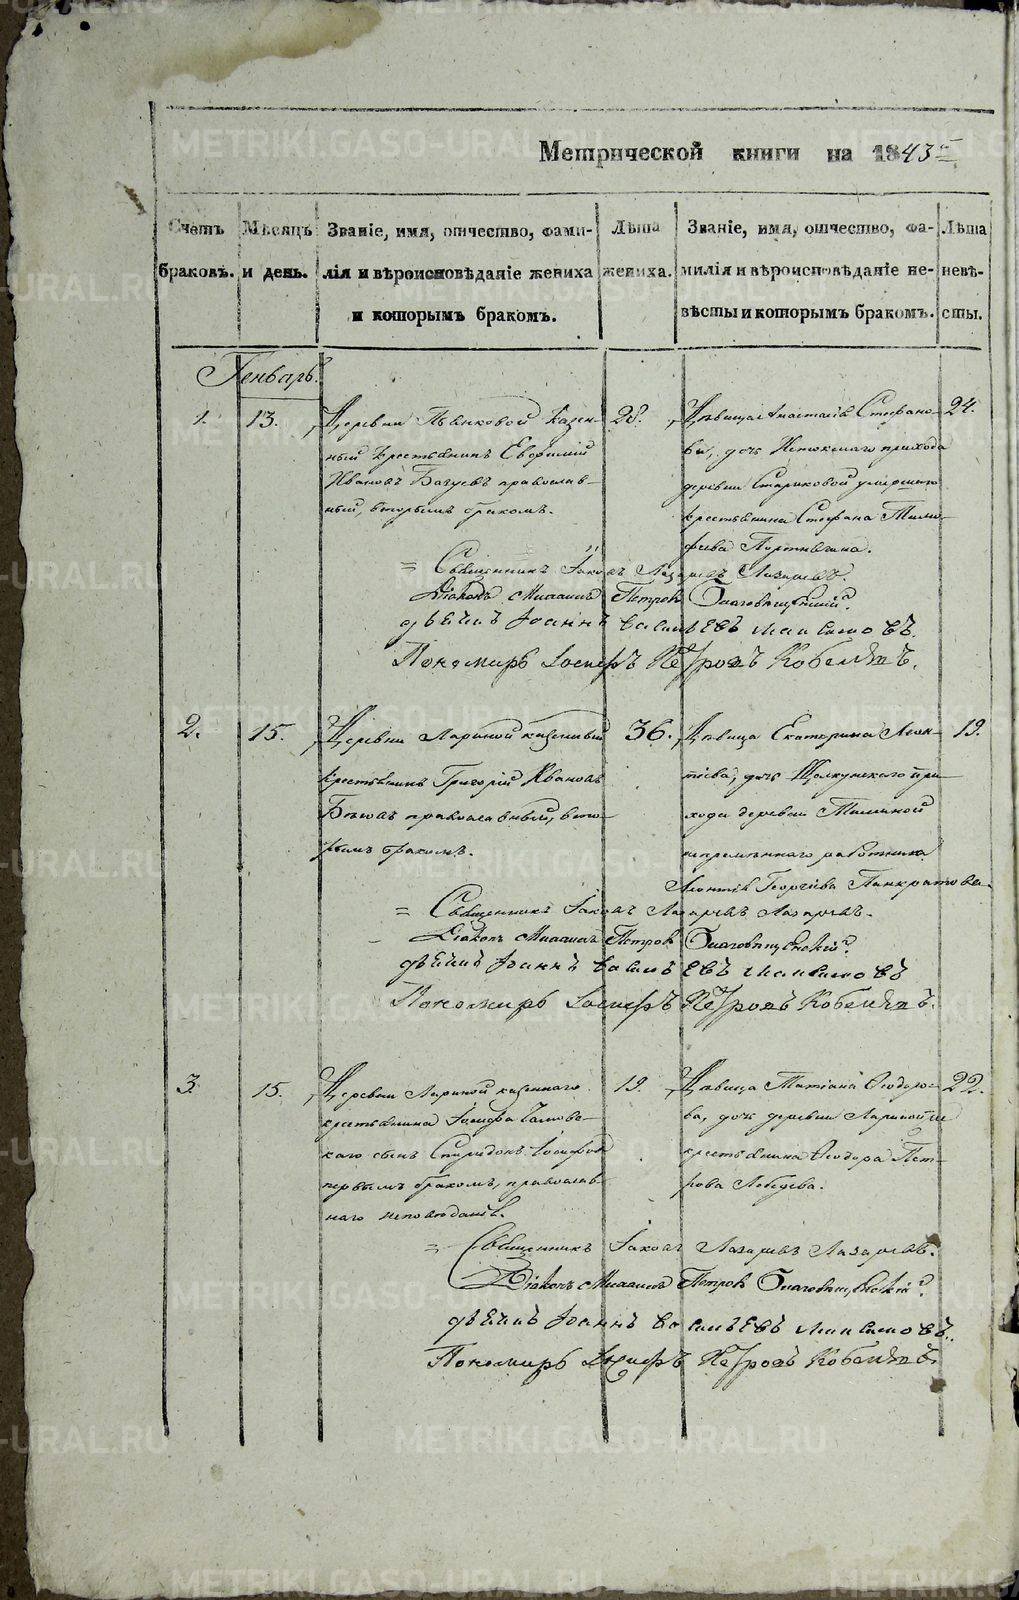 Метрической книги на 1843 г
Счетъ браковъ.
Мѣсяцъ и день.
Званіе, имя, отчество, фами-
лія и вѣроисповѣданіе жениха
и которымъ бракомъ.
Лѣта жениха.
Званіе, имя, отчество, фа-
милія и вѣроисповѣданіе не-
вѣсты и которымъ бракомъ.
Лѣта невѣ-
сты.
Генварь.
1.
13.
Деревни Пьянковой казен-
ный крестьянинъ Евфимій
Ивановъ православ-
ный, вторымъ бракомъ.
28.
Дѣвица Анастасія Стефано-
ва, дочь прихода
деревни Стариковой умершаго
крестьянина Стефана Тимо-
феева
24.
Священникъ Іаковъ Лазаревъ Лазаревъ.
Діаконъ Михаилъ Петровъ Благовѣщенскій
дьячикъ Іоаннъ Васильевъ Максимовъ.
Пономарь Іосифъ Петровъ Кобелевъ.
2.
15.
Деревни Лариной казенный
крестьянинъ Григорій Ивановъ
православный, вто-
рымъ бракомъ.
36.
Дѣвица Екатерина Леон-
тіева, дочь Щелкунскаго при-
хода деревни
непремѣннаго работника
Леонтія Георгіева Панкратова.
19.
Священникъ Іаковъ Лазаревъ Лазаревъ.
Діаконъ Михаилъ Петровъ Благовѣщенскій
дьячикъ Іоаннъ Васильевъ Максимовъ
Пономарь Іосифъ Петровъ Кобелевъ.
3.
15.
Деревни Лариной казеннаго
крестьянина Іосифа
сынъ Спиридонъ Іосифовъ
первымъ бракомъ, православ-
наго исповѣданія.
19.
Дѣвица Татіана Ѳеодоро-
ва, дочь деревни Лариной
крестьянина Ѳеодора Пет-
рова Лебедева.
22.
Священникъ Іаковъ Лазаревъ Лазаревъ.
Діаконъ Михаилъ Петровъ Благовѣщенскій
дьячикъ Іоаннъ Васильевъ Максимовъ.
Пономарь Іосифъ Петровъ Кобелевъ.
METRIKI.GASO-URAL.RU